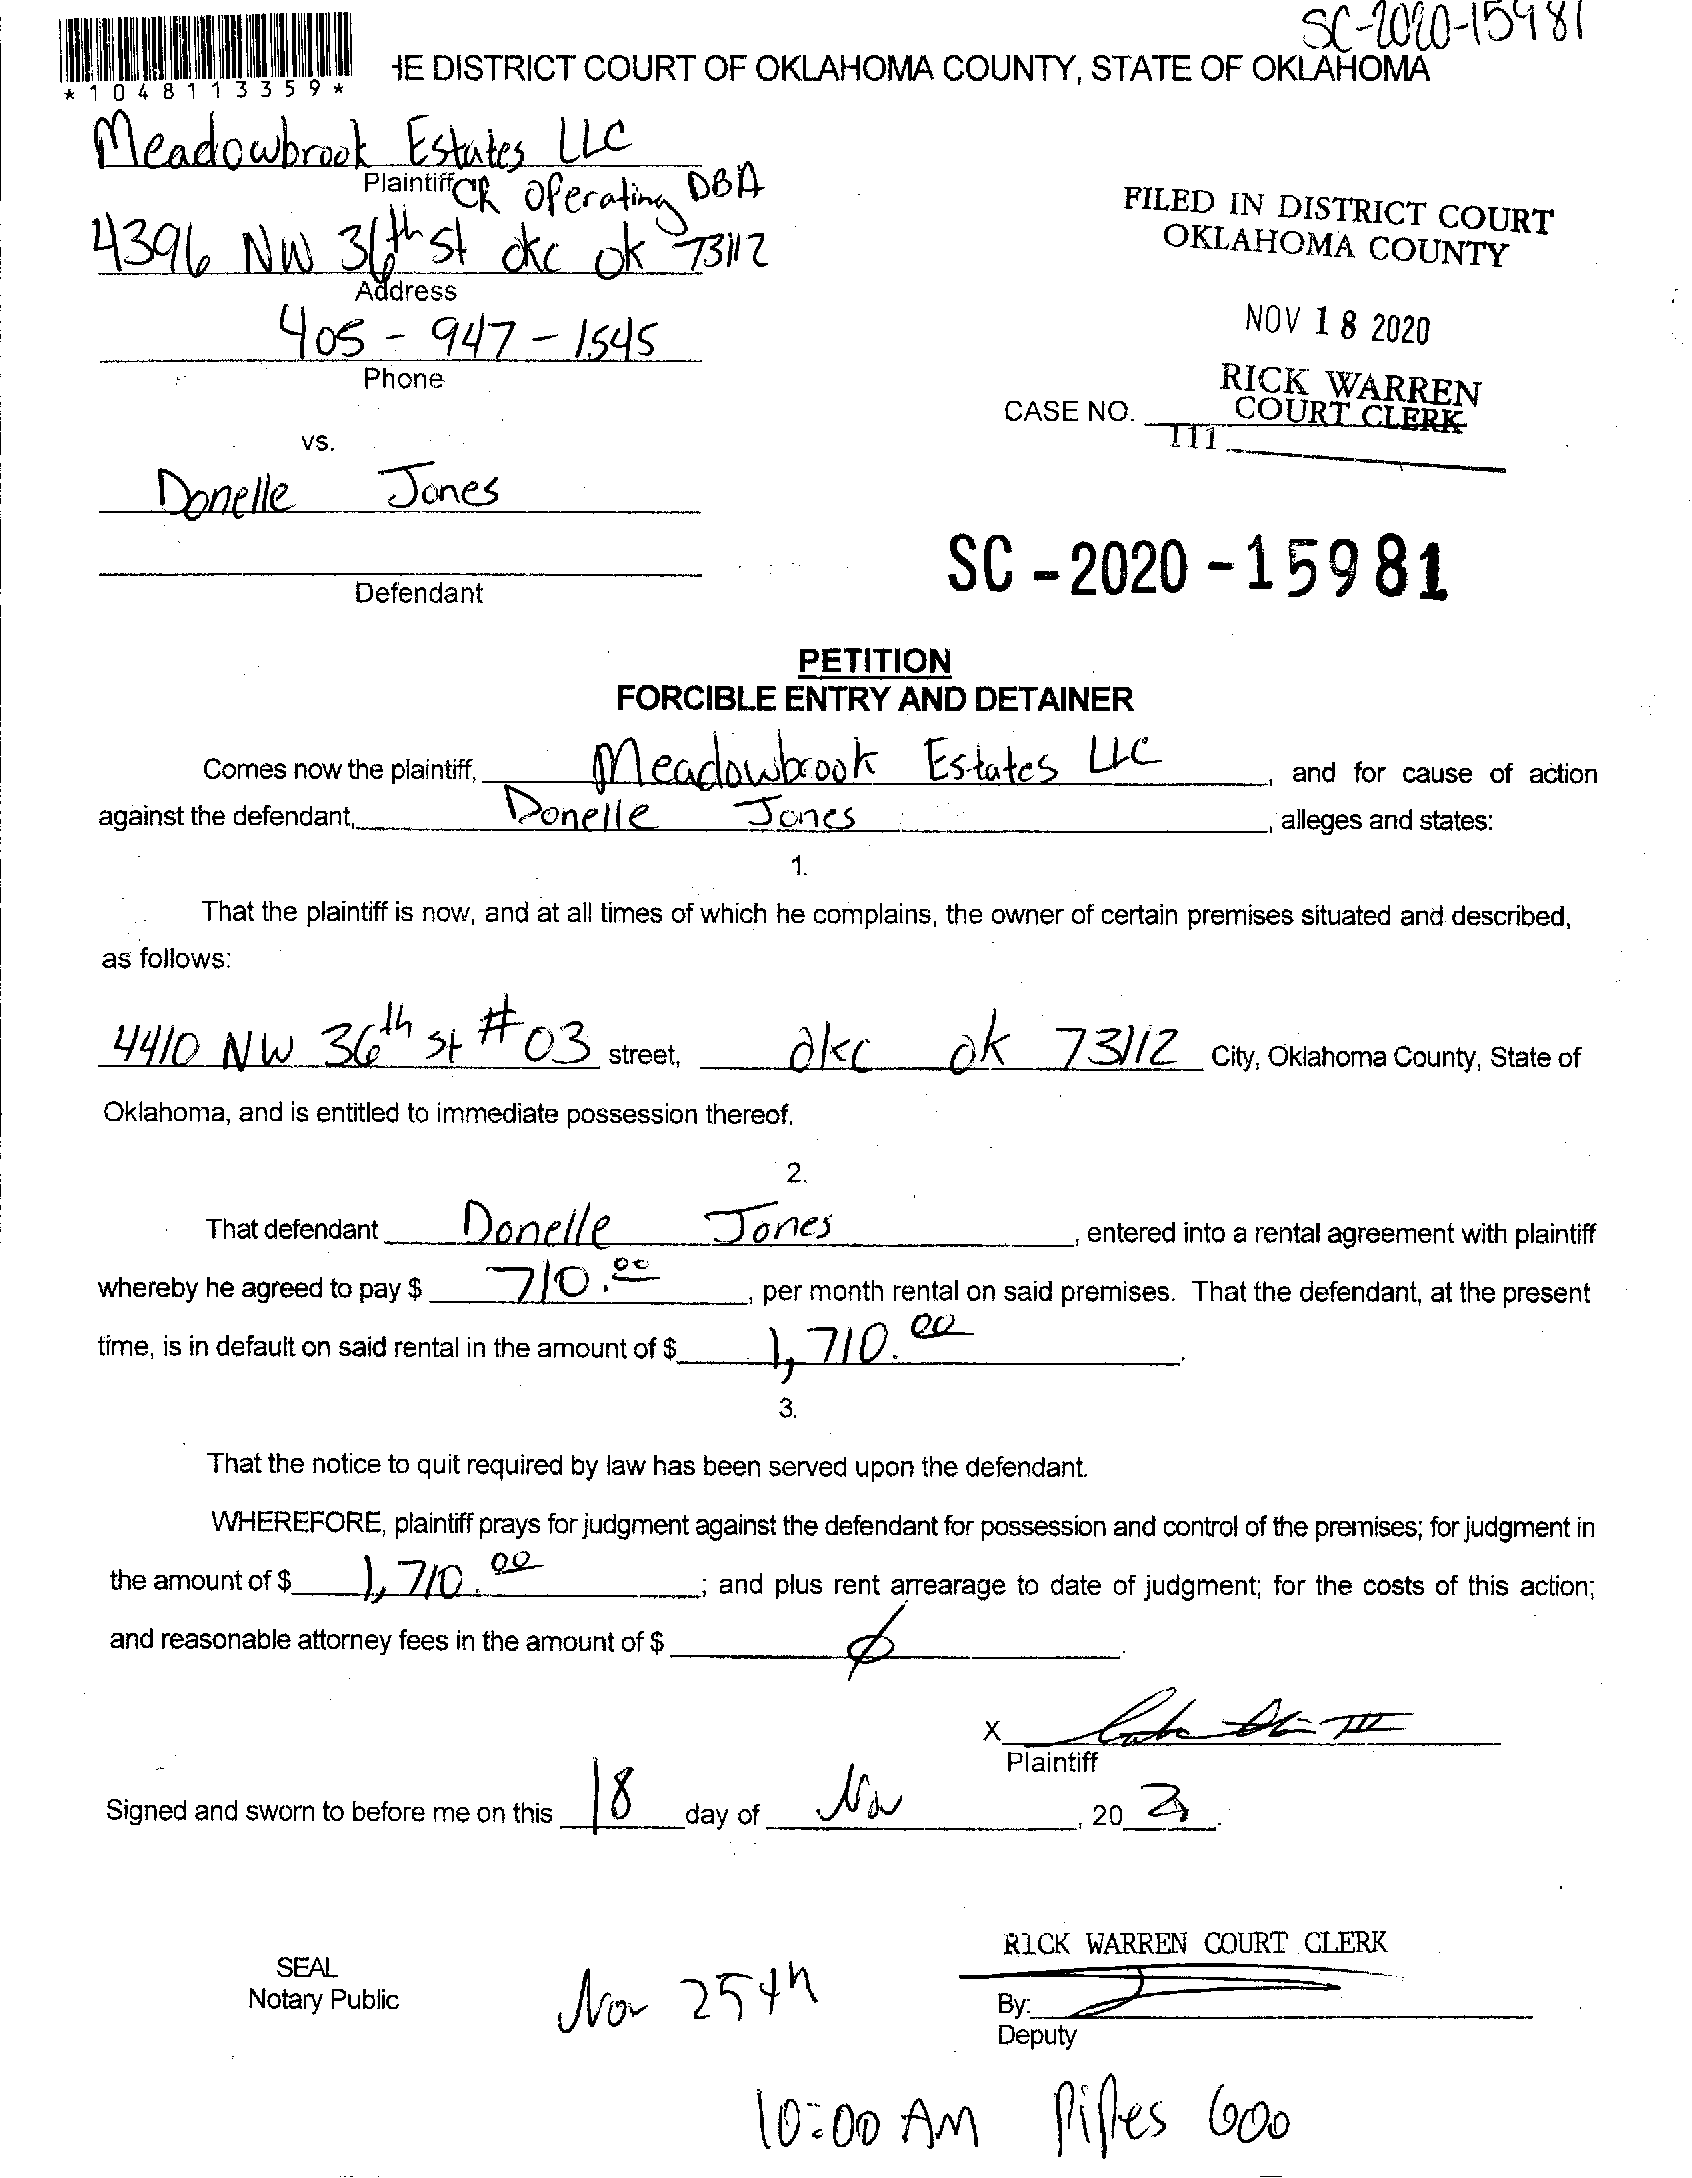 SC-2020-15981
*1048113359*
HE DISTRICT COURT OF OKLAHOMA COUNTY, STATE OF OKLAHOMA
Meadowbrook Estates LLC
Plaintiff CR Operating DBA
4396 NW 36th st okc ok 73112
Address
405-947-1545
Phone
FILED IN DISTRICT COURT
OKLAHOMA COUNTY
NOV 18 2020
RICK WARREN
COURT CLERK
CASE NO.
111
vs.
Donelle Jones
Defendant
SC-2020-15981
PETITION
FORCIBLE ENTRY AND DETAINER
Comes now the plaintiff, Meadowbrook Estates LLC, and for cause of action
against the defendant, Donelle Jones, alleges and states:
1.
That the plaintiff is now, and at all times of which he complains, the owner of certain premises situated and described,
as follows:
4410 NW 36th st #03 street, okc ok 73112 City, Oklahoma County, State of
Oklahoma, and is entitled to immediate possession thereof.
2.
That defendant Donelle Jones, entered into a rental agreement with plaintiff
whereby he agreed to pay $ 710.00, per month rental on said premises. That the defendant, at the present
time, is in default on said rental in the amount of $ 1,710.00.
3.
That the notice to quit required by law has been served upon the defendant.
WHEREFORE, plaintiff prays for judgment against the defendant for possession and control of the premises; for judgment in
the amount of $ 1,710.00; and plus rent arrearage to date of judgment; for the costs of this action;
and reasonable attorney fees in the amount of $ ∅.
X III
Plaintiff
Signed and sworn to before me on this 18 day of Nov, 20
RICK WARREN COURT CLERK
SEAL
Notary Public
Nov 25th
By:
Deputy
10:00 AM Pipes 600